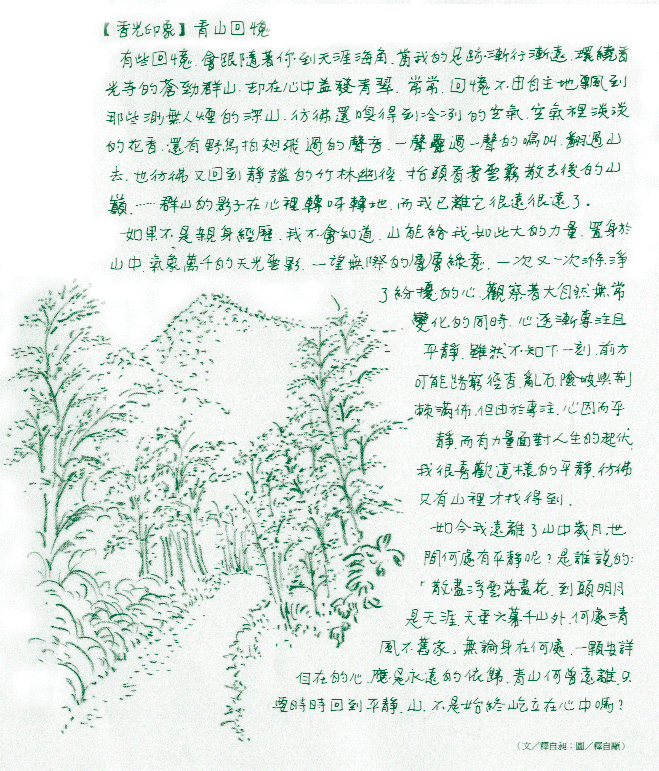 【香光印象】青山回憶
有些回憶,會跟隨著你到天涯海角,當我的足跡漸行漸遠,環繞香
光寺的蒼勁群山,卻在心中益發青翠。常常,回憶不由自主地飄到
那些渺無人煙的深山,彷彿還嗅得到冷冽的空氣,空氣裡淡淡
的花香,還有野鳥拍翅飛過的聲音,一聲疊過一聲的鳴叫,翻過山
去,也彷彿又回到靜謐的竹林幽徑,抬頭看著雲霧散去後的山
巔,……群山的影子在心裡轉呀轉地,而我已離它很遠很遠了。
如果不是親身經歷,我不會知道,山能給我如此大的力量,置身於
山中,氣象萬千的天光雲影,一望無際的層層綠意,一次又一次滌淨
了紛擾的心,觀察著大自然無常
變化的同時,心逐漸專注且
平靜,雖然不知下一刻,前方
可能路窮徑杳,亂石、險坡與荊
棘滿佈,但由於專注,心因而平
靜,而有力量面對人生的起伏,
我很喜歡這樣的平靜,彷彿
又有山裡才找得到。
如今我遠離了山中歲月,世
間何處有平靜呢?是誰說的:
「散盡浮雲落盡花,到頭明月
是天涯,天垂六幕千山外,何處清
風不舊家」,無論身在何處,一顆安詳
自在的心,應是永遠的依歸,青山何曾遠離,只
要時時回到平靜,山,不是始終屹立在心中嗎?
(文/釋自昶;圖/釋自顓)